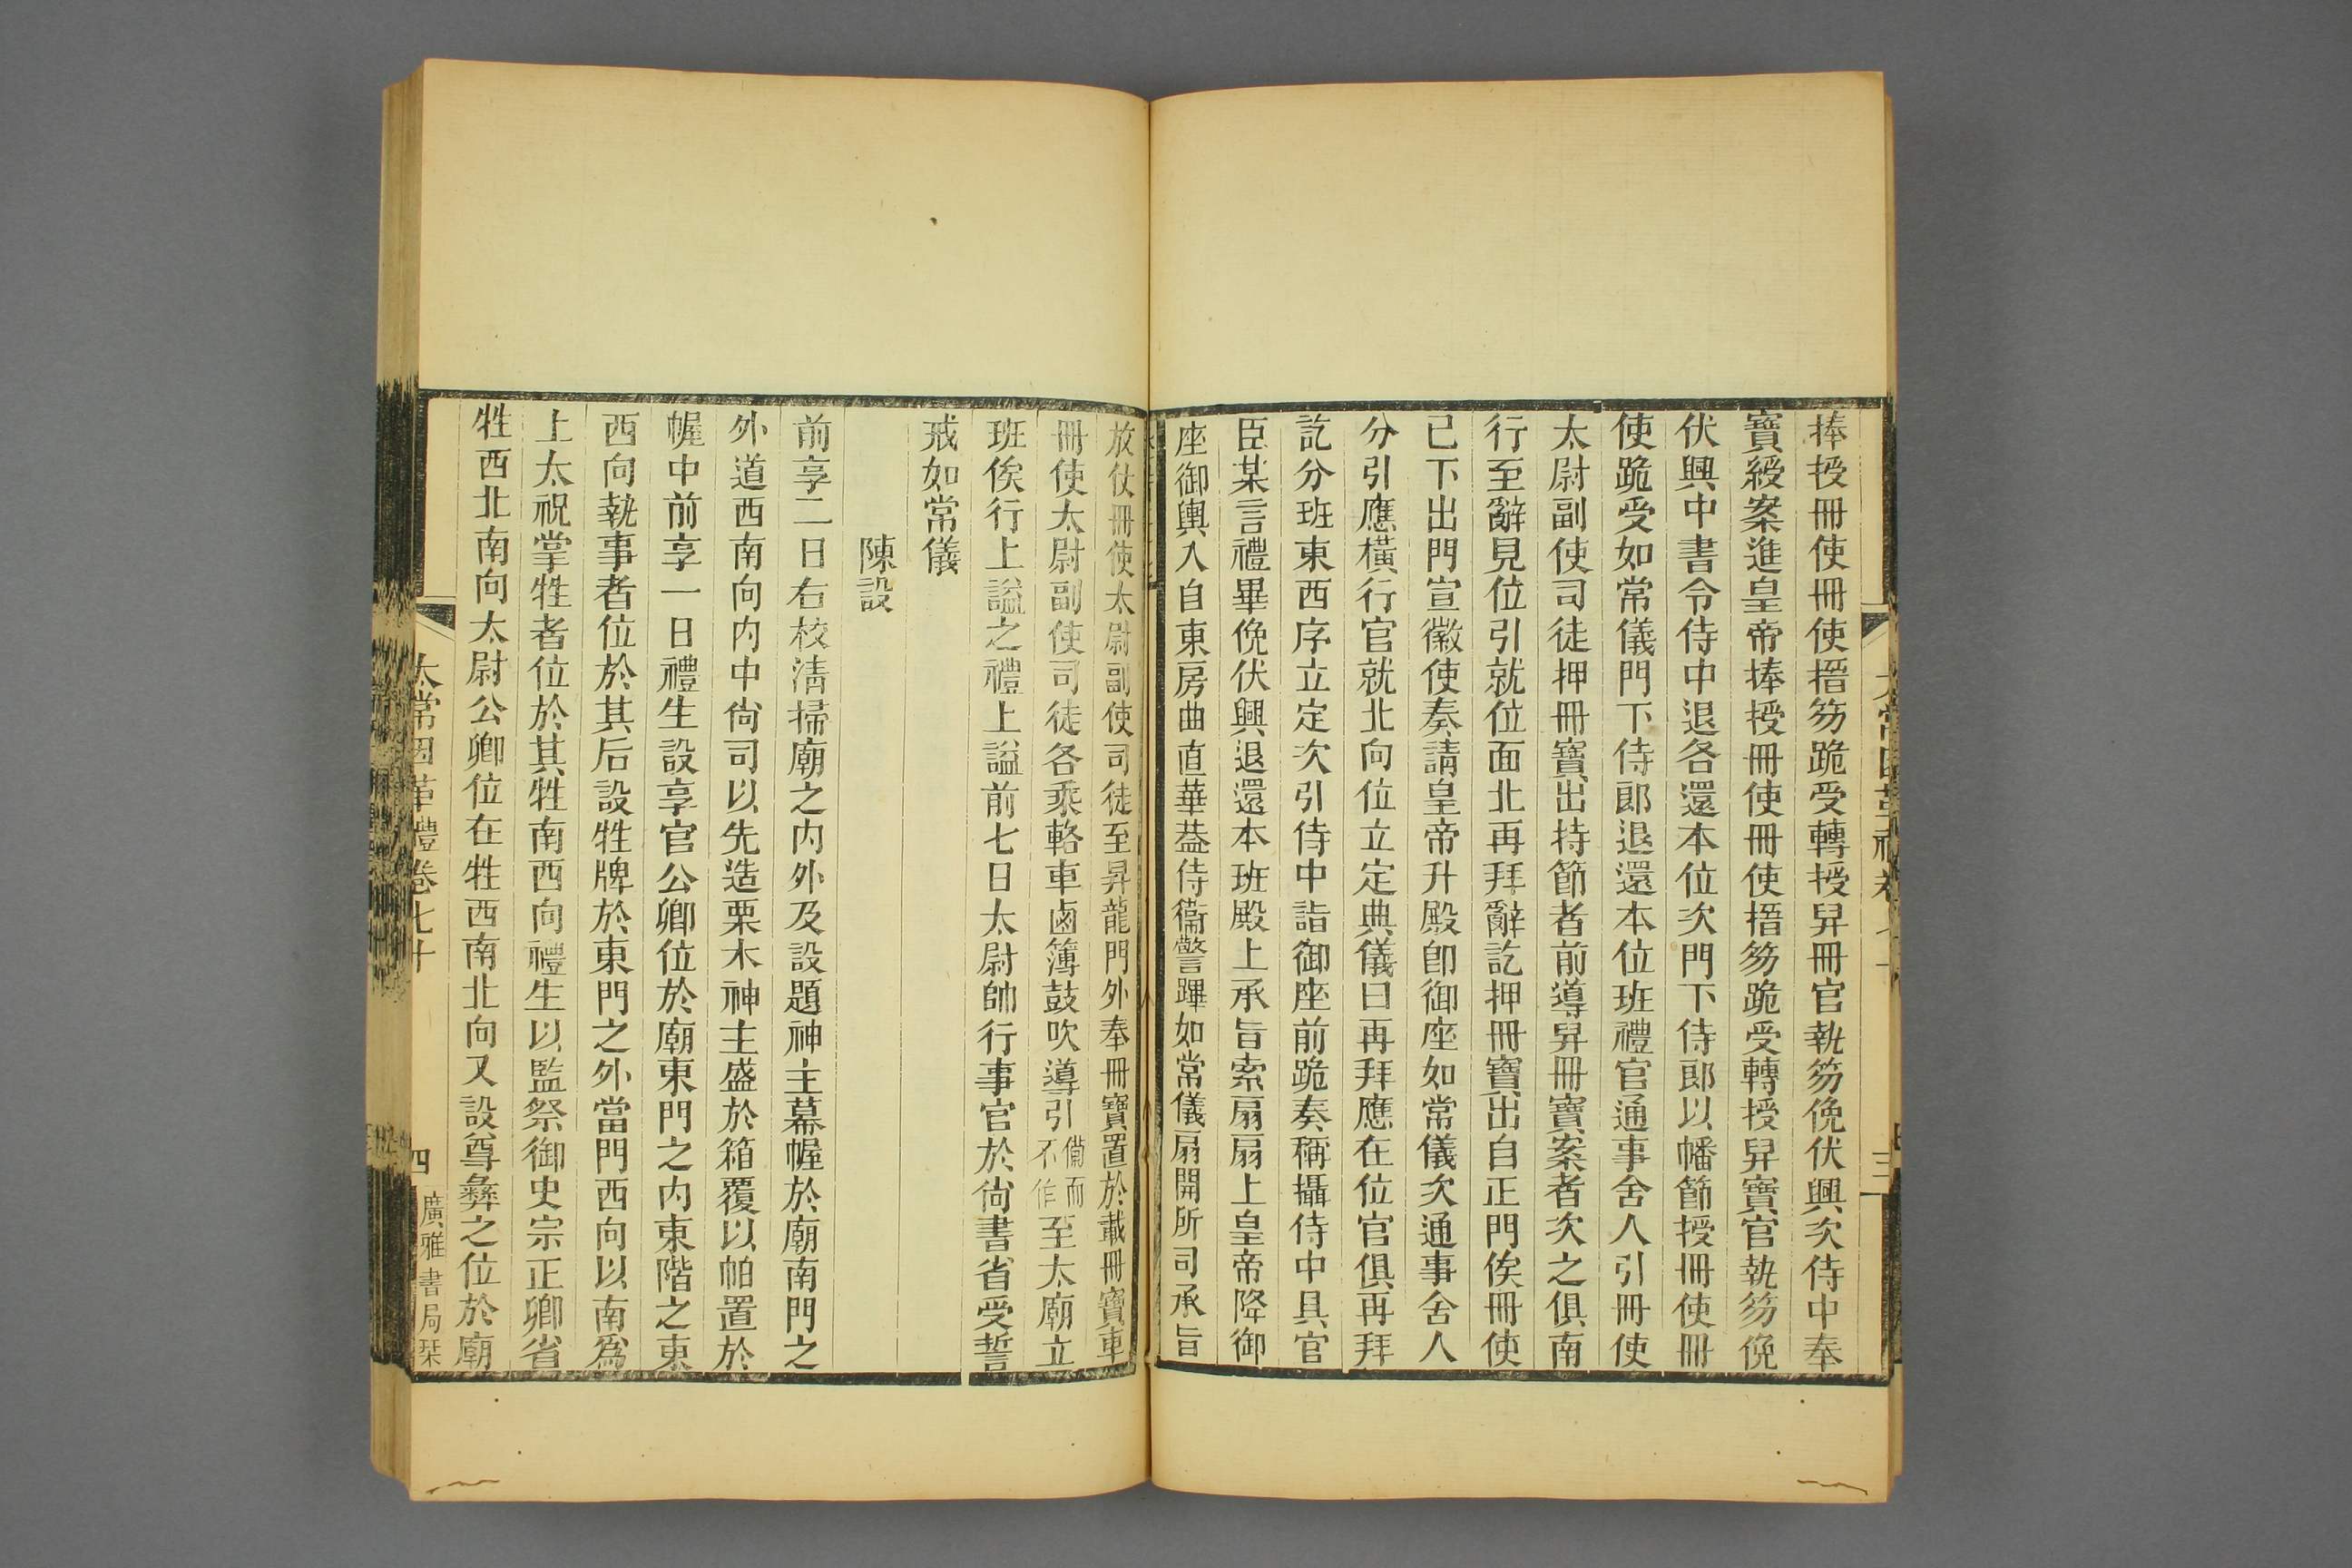 捧授冊使冊使搢笏跪受轉授舁冊官執笏俛伏興次侍中奉
寶綬案進皇帝捧授冊使冊使搢笏跪受轉授舁寶官執笏俛
伏興中書令侍中退各還本位次門下侍郎以幡節授冊使冊
使跪受如常儀門下侍郎退還本位班禮官通事舍人引冊使
太尉副使司徒押冊寶出持節者前導舁冊寶案者次之俱南
行至辭見位引就位面北再拜辭訖押冊寶出自正門俟冊使
已下出門宣徽使奏請皇帝升殿卽御座如常儀次通事舍人
分引應橫行官就北向位立定典儀曰再拜應在位官俱再拜
訖分班東西序立定次引侍中詣御座前跪奏稱攝侍中具官
臣某言禮畢俛伏興退還本班殿上承旨索扇扇上皇帝降御
座御輿入自東房曲直華葢侍衞警蹕如常儀扇開所司承旨
放仗冊使太尉副使司徒至昇龍門外奉冊寶置於載冊寶車
冊使太尉副使司徒各乘輅車鹵簿鼓吹導引備而不作至太廟立
班俟行上謚之禮上謚前七日太尉帥行事官於尙書省受誓
戒如常儀
陳設
前享二日右校淸掃廟之内外及設題神主幕幄於廟南門之
外道西南向内中尙司以先造栗木神主盛於箱覆以帕置於
幄中前享一日禮生設享官公卿位於廟東門之内東階之東
西向執事者位於其后設牲牌於東門之外當門西向以南爲
上太祝掌牲者位於其牲南西向禮生以監祭御史宗正卿省
牲西北南向太尉公卿位在牲西南北向又設尊彝之位於廟
太常因革禮卷七十
四
廣雅書局栞